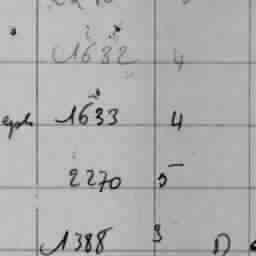 1632 4
1633 4
2270 5
1388 3